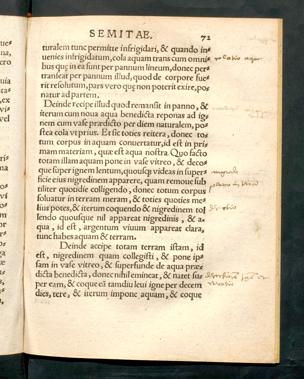 SEMITAE. 72
turalem tunc permitte infrigidari, & quando in-
uenies infrigidatum, cola aquam trans cum omni
bus quæ in ea sunt per pannum lineum, donec per
transeat per pannum illud, quod de corpore fue-
rit resolutum, pars vero quę non poterit exire, po
natur ad partem.
Deinde recipe illud quod remansit in panno, &
iterum cum noua aqua benedicta reponas ad ig-
nem cum vase prædicto per diem naturalem, po-
stea cola vt prius. Et sic toties reitera, donec to-
tum corpus in aquam conuertatur, id est in pri-
mam materiam, quæ est aqua nostra. Quo facto
totam illam aquam pone in vase vitreo, & deco-
que super ignem lentum, quousq; videas in super
ficie eius nigredinem apparere, quam remoue sub
tiliter quotidie colligendo, donec totum corpus
soluatur in terram meram, & toties quoties me-
lius potes, & iterum coquendo & nigredinem tol
lendo quousque nil appareat nigredinis, & a-
qua, id est, argentum viuum appareat clara,
tunc habes aquam & terram.
Deinde accipe totam terram istam, id
est, nigredinem quam collegisti, & pone ip-
sam in vase vitreo, & superfunde de aqua præ
dicta benedicta, donec nihil emineat, & natet su-
per eam, & coque eā tamdiu leui igne per decem
dies, tere, & iterum impone aquam, & coque